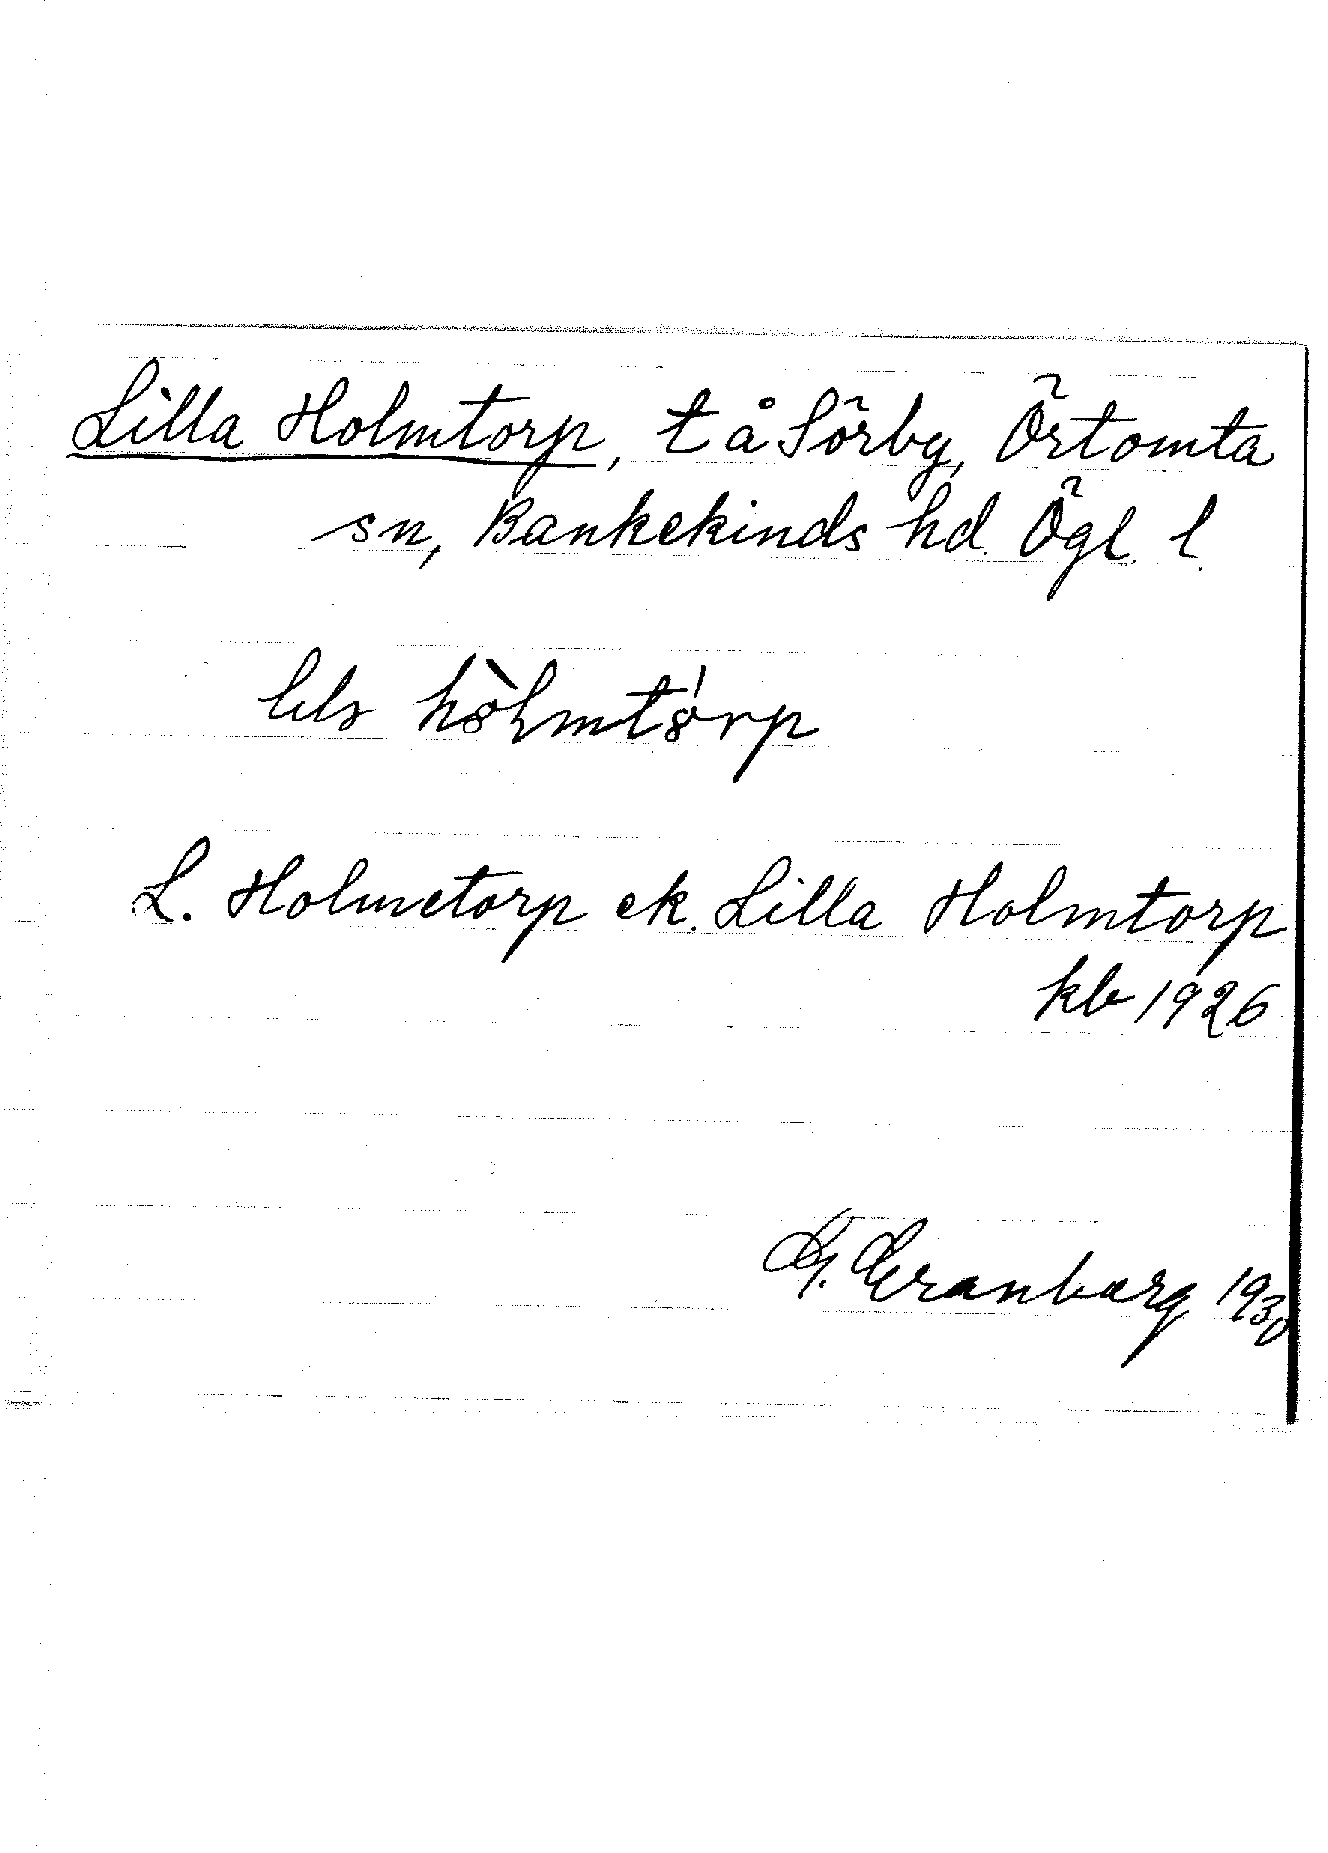 Lilla Holmtorp, t å Sörby, Örtomta
sn, Bankekinds hd. Ögl. l.
hòlmtórp
L. Holmetorp ek. Lilla Holmtorp
kb 1926
G. Granberg 1930